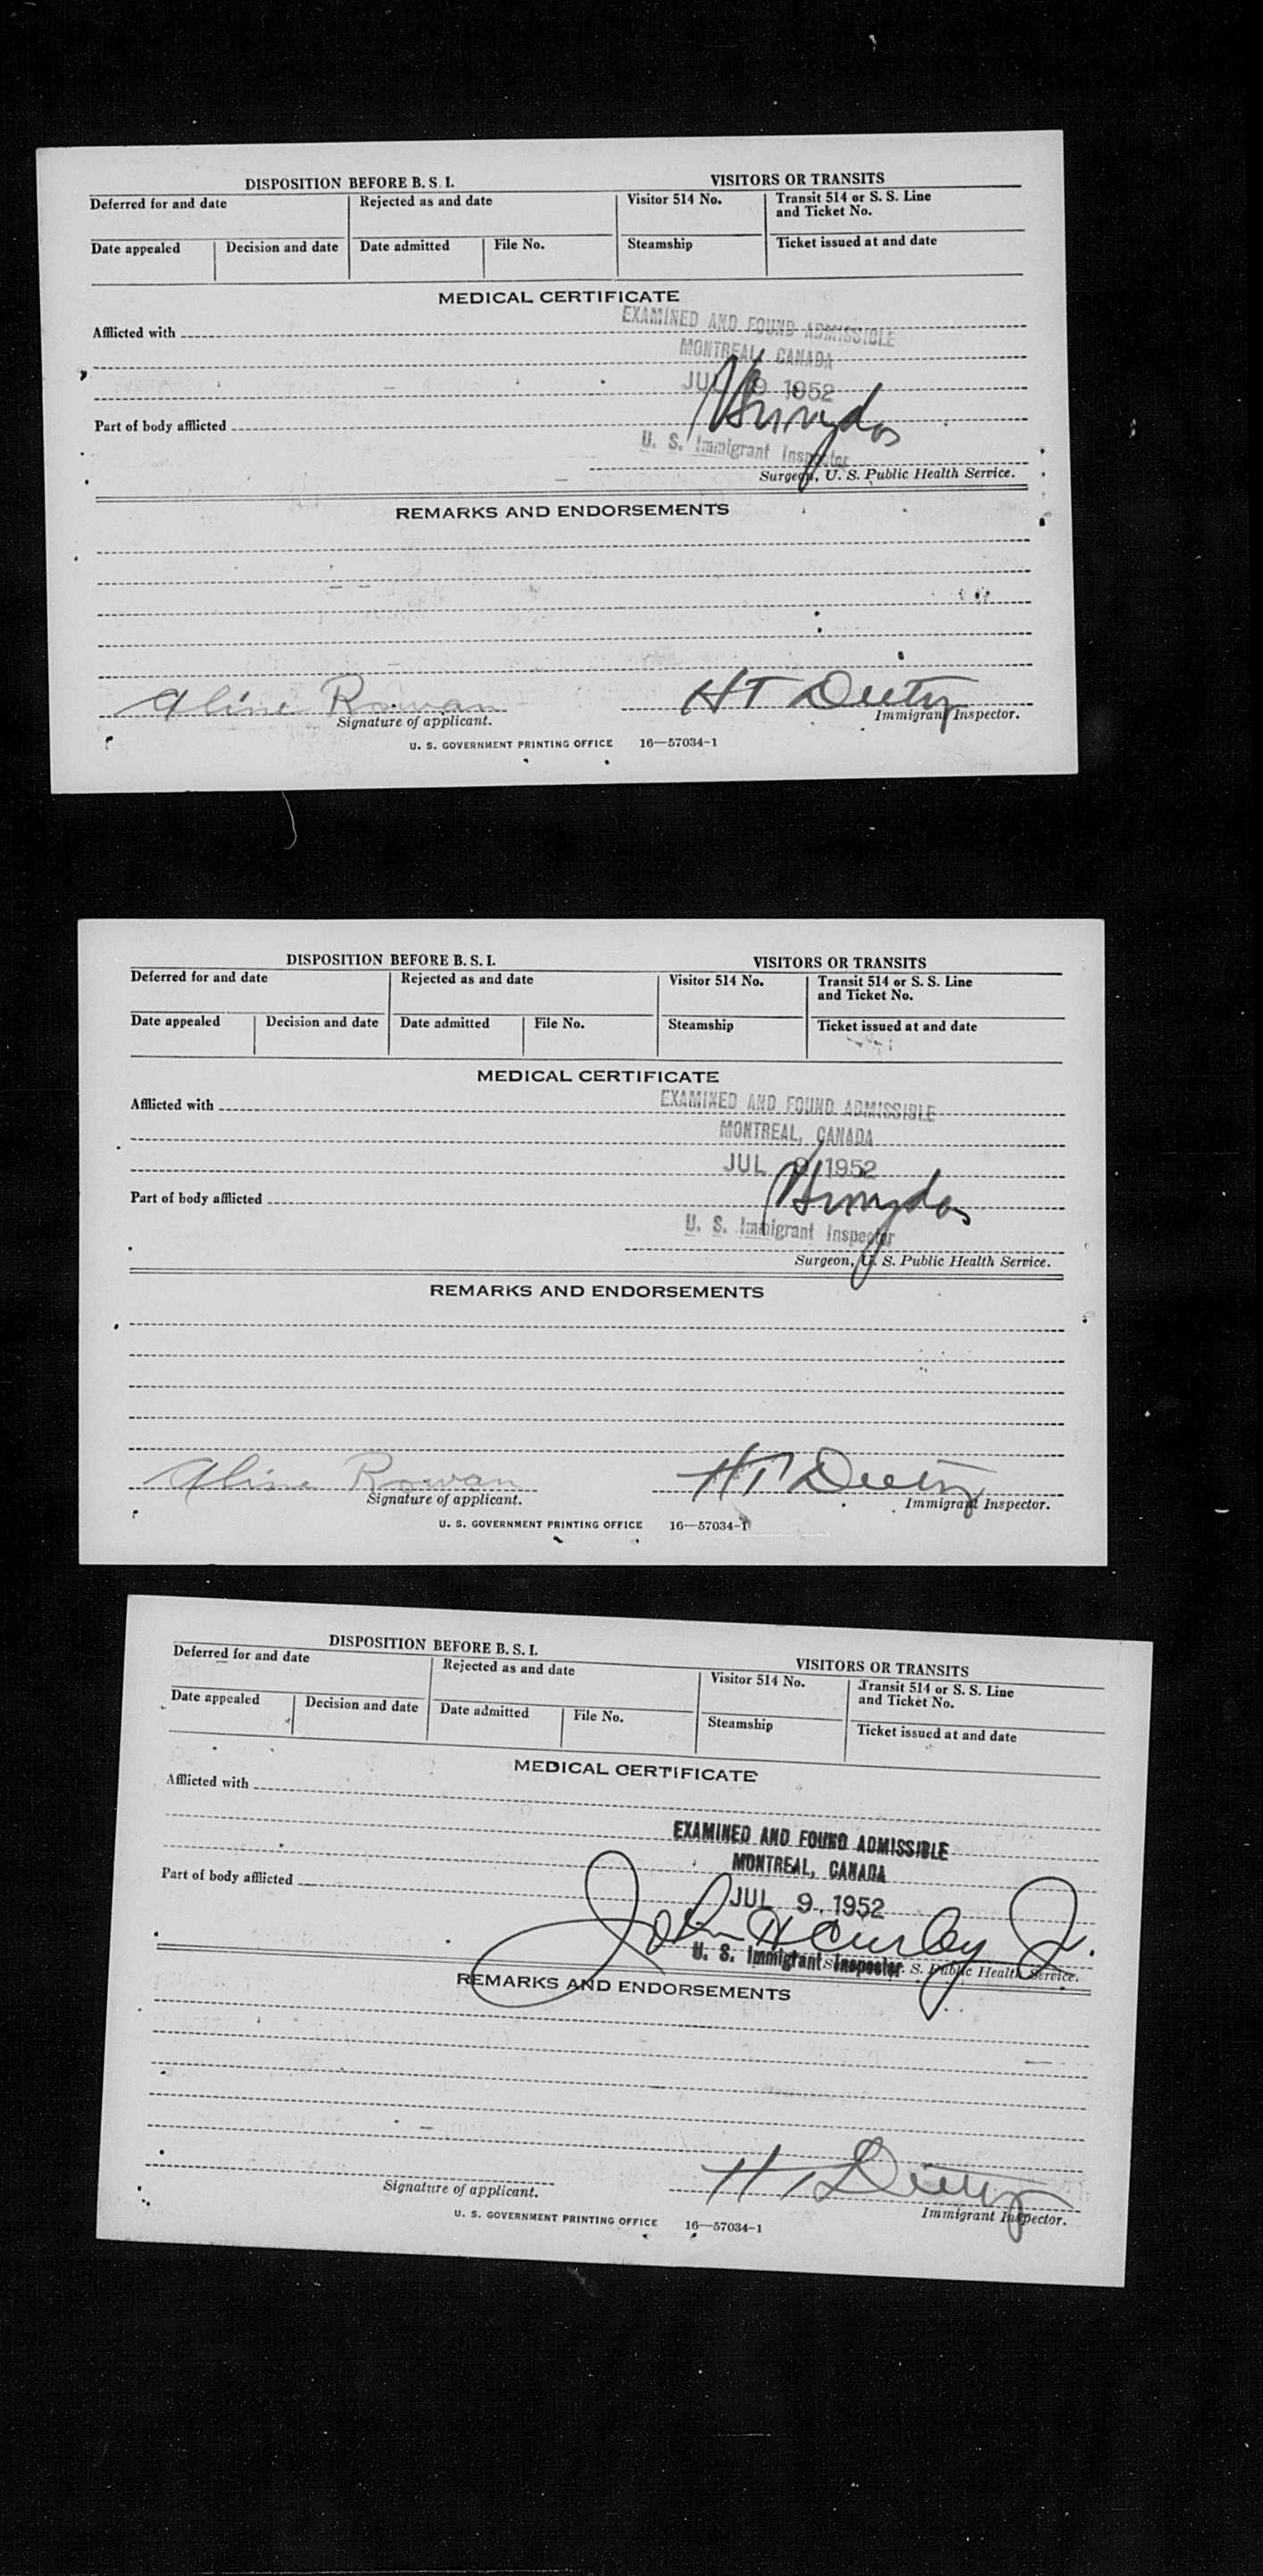 DISPOSITION BEFORE B. S. I. VISITORS OR TRANSITS
Deferred for and date Rejected as and date Visitor 514 No. Transit 514 or S. S. Line and Ticket No.
Date appealed Decision and date Date admitted File No. Steamship Ticket issued at and date
MEDICAL CERTIFICATE
EXAMINED AND FOUND ADMISSIBLE
Afflicted with
MONTREAL, CANADA
JUL 9 1952
Part of body afflicted
U. S. Immigrant Inspector
Surgeon, U. S. Public Health Service.
REMARKS AND ENDORSEMENTS
Aline Rowan HT Dietz
Signature of applicant. Immigrant Inspector.
U. S. GOVERNMENT PRINTING OFFICE 16—57034-1
DISPOSITION BEFORE B. S. I. VISITORS OR TRANSITS
Deferred for and date Rejected as and date Visitor 514 No. Transit 514 or S. S. Line and Ticket No.
Date appealed Decision and date Date admitted File No. Steamship Ticket issued at and date
MEDICAL CERTIFICATE
Afflicted with EXAMINED AND FOUND ADMISSIBLE
MONTREAL, CANADA
JUL 9 1952
Part of body afflicted
U. S. Immigrant Inspector
Surgeon, U. S. Public Health Service.
REMARKS AND ENDORSEMENTS
Aline Rowan HT Dietz
Signature of applicant. Immigrant Inspector.
U. S. GOVERNMENT PRINTING OFFICE 16—57034-1
DISPOSITION BEFORE B. S. I. VISITORS OR TRANSITS
Deferred for and date Rejected as and date Visitor 514 No. Transit 514 or S. S. Line and Ticket No.
Date appealed Decision and date Date admitted File No. Steamship Ticket issued at and date
MEDICAL CERTIFICATE
Afflicted with
EXAMINED AND FOUND ADMISSIBLE
MONTREAL, CANADA
Part of body afflicted
JUL 9 1952
John H Curley Jr.
U. S. Immigrant Inspector S. Public Health Service.
REMARKS AND ENDORSEMENTS
HT Dietz
Signature of applicant. Immigrant Inspector.
U. S. GOVERNMENT PRINTING OFFICE 16—57034-1